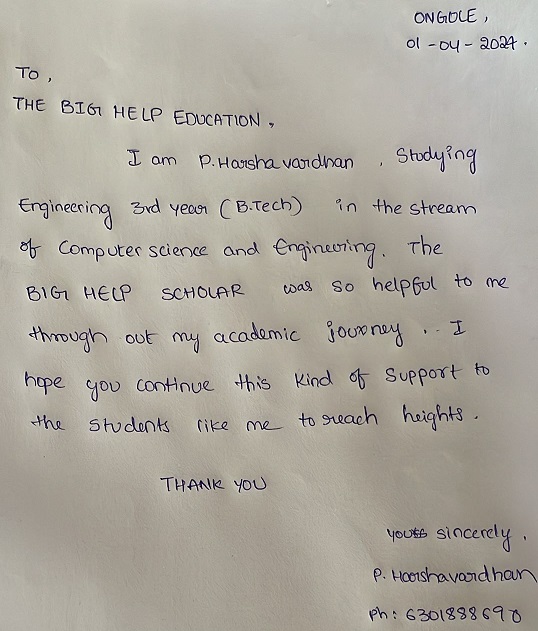 ONGOLE,
01-04-2024.
To,
THE BIG HELP EDUCATION,
I am P.Harsha vardhan , Studying
Engineering 3rd year (B.Tech) in the stream
of Computer science and Engineering. The
BIG HELP SCHOLAR was so helpful to me
through out my academic journey .. I
hope you continue this kind of support to
the students like me to reach heights.
THANK YOU
yours sincerely,
P. Harshavardhan
Ph: 6301888690